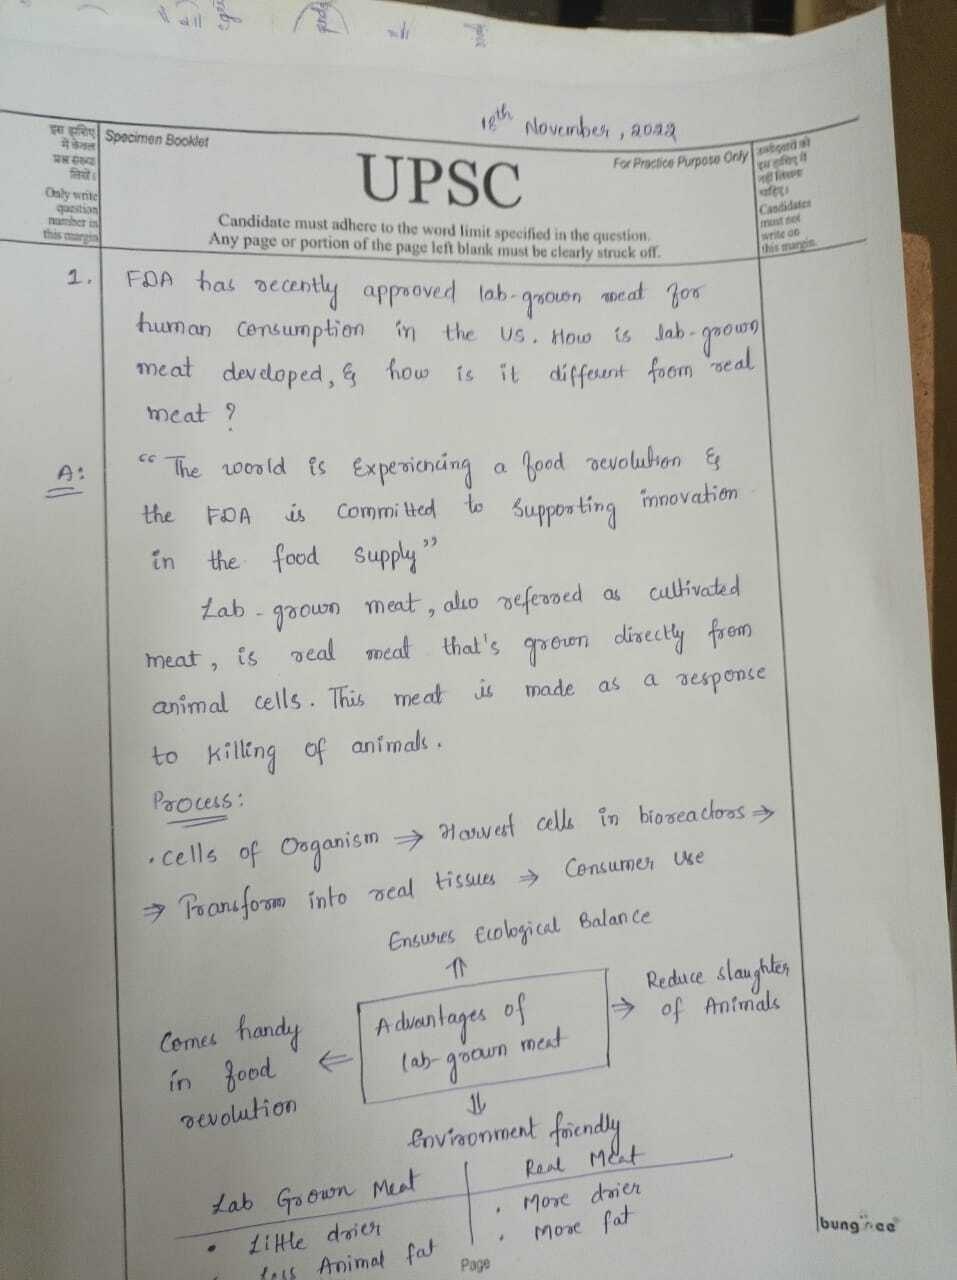 18th November, 2022
इस हाशिए में केवल प्रश्न संख्या लिखें।
Only write question number in this margin
Specimen Booklet
UPSC
For Practice Purpose Only
Candidate must adhere to the word limit specified in the question.
Any page or portion of the page left blank must be clearly struck off.
उम्मीदवारों को इस हाशिए में नहीं लिखना चाहिए।
Candidates must not write on this margin.
1. FDA has recently approved lab-grown meat for
human consumption in the US. How is lab-grown
meat developed, & how is it different from real
meat ?
A: "The world is Experiencing a food revolution &
the FDA is Committed to Supporting innovation
in the food supply"
Lab-grown meat, also referred as cultivated
meat, is real meat that's grown directly from
animal cells. This meat is made as a response
to killing of animals.
Process:
• cells of Organism ⇒ Harvest cells in bioreactors ⇒
⇒ Transform into real tissues ⇒ Consumer Use
Ensures Ecological Balance
⇑
Comes handy in food revolution ⇐ Advantages of lab-grown meat ⇒ Reduce slaughter of Animals
⇓
Environment friendly
Lab Grown Meat | Real Meat
• Little drier | • More drier
• Less Animal fat | • More fat
Page
bungee